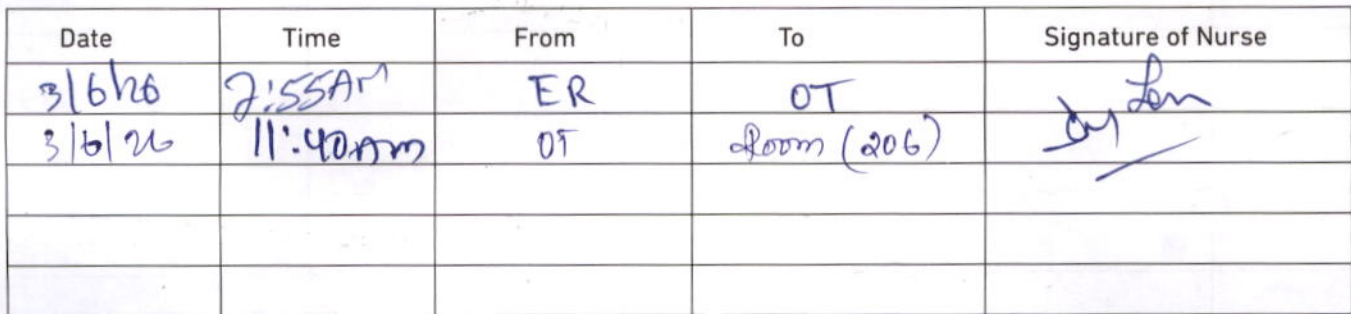 Date Time From To Signature of Nurse
3/6/26 7:55AM ER OT
3/6/26 11:40am OT Room (206)